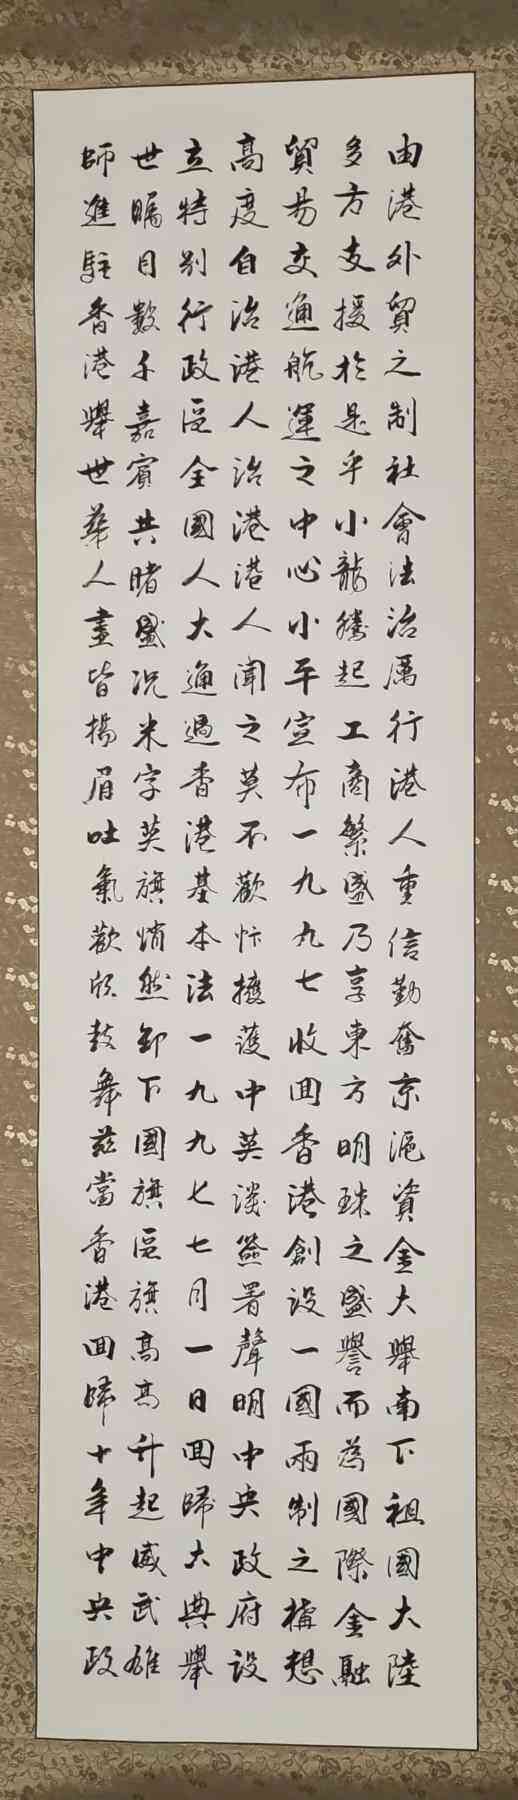 由港外貿之制社會法治厲行港人重信勤奮京滬資金大舉南下祖國大陸
多方支援於是乎小龍騰起工商繁盛乃享東方明珠之盛譽而為國際金融
貿易交通航運之中心小平宣布一九九七收回香港創設一國兩制之構想
高度自治港人治港港人聞之莫不歡忭擁護中英談簽署聲明中央政府設
立特別行政區全國人大通過香港基本法一九九七七月一日回歸大典舉
世矚目數千嘉賓共睹盛況米字英旗悄然卸下國旗區旗高高升起威武雄
師進駐香港舉世華人畫皆揚眉吐氣歡欣鼓舞茲當香港回歸十年中央政